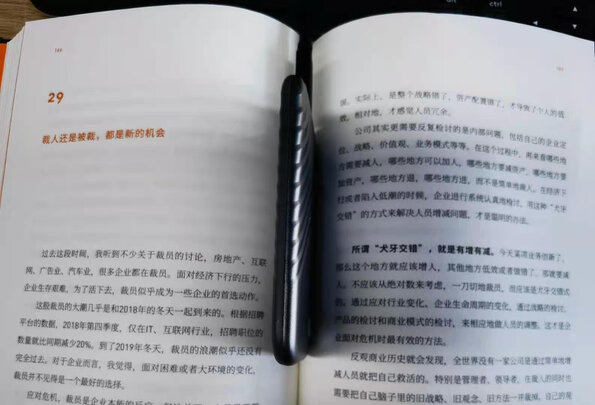 alt
ctrl
188
29
裁人还是被裁,都是新的机会
过去这段时间,我听到不少关于裁员的讨论,房地产、互联
网、广告业、汽车业,很多企业都在裁员。面对经济下行的压力,
企业生存艰难,为了活下去,裁员似乎成为一些企业的首选动作。
这股裁员的大潮几乎是和2018年的冬天一起到来的。根据招聘
平台的数据,2018年第四季度,仅在IT、互联网行业,招聘职位的
数量就比同期减少20%。到了2019年冬天,裁员的浪潮似乎还没有
完全过去。对于企业而言,我觉得,面对困难或者大环境的变化,
裁员并不见得是一个最好的选择。
应对危机,裁员是企业本能的反应
误。实际上,是整个战略错了,资产配置错了,才导致了个人的低
效。相对地,才感觉人员冗余。
公司其实更需要反复检讨的是内部问题,包括自己的企业定
位、战略、价值观、业务模式等等。在这个过程中,再来看哪些地
方需要减人,哪些地方可以加人,哪些地方要减资产,哪些地方要
加资产,哪些地方退,哪些地方进,而不是简单地裁人。在经济下
行或者陷入低潮的时候,企业进行系统认真地检讨,用这种“犬牙
交错”的方式来解决人员增减问题,才是聪明的办法。
所谓“犬牙交错”,就是有增有减。今天某项业务创新了,
那么这个地方就应该增人,其他地方低效或者做错了,那就要减
人。不应该从绝对数来考虑,一刀切地裁员,而应该是犬牙交错式
的。通过应对行业变化、企业生命周期的变化,通过战略的检讨,
产品的检讨和商业模式的检讨,来相应地做人员的调整。这才是企
业面对危机时最有效的方法。
反观商业历史就会发现,全世界没有一家公司是通过简单地增
减人员就把自己救活的。特别是管理者、领导者,在裁人的同时也
需要把自己脑子里的旧战略、旧观念、旧方法一并裁掉,自己的观